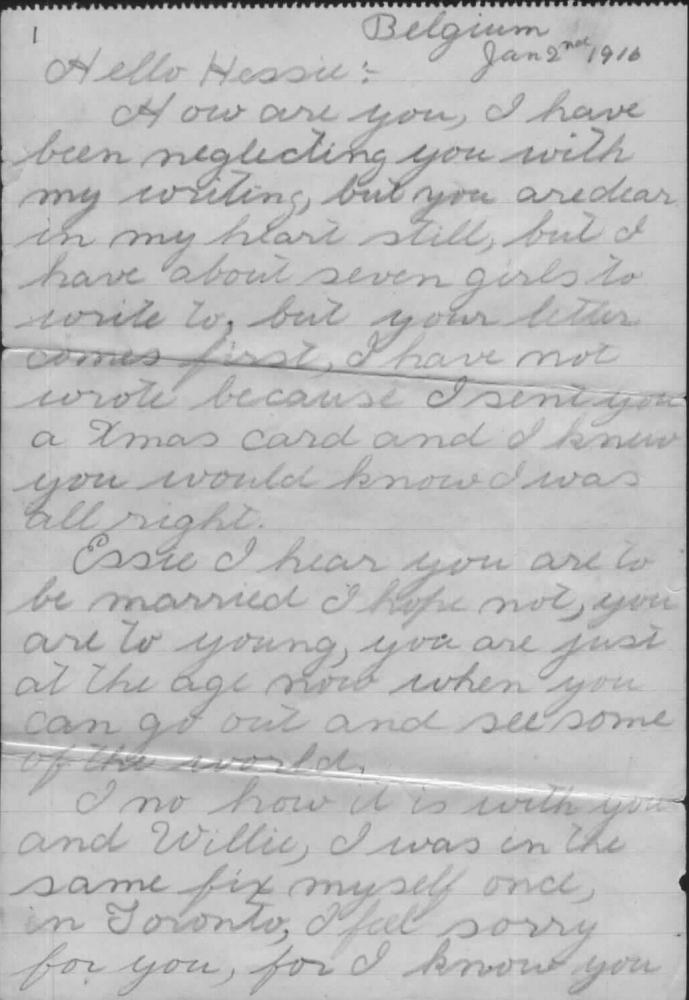 1
Belgium
Jan 2nd 1916
Hello Hessie:-
How are you, I have
been neglecting you with
my writing, but you are dear
in my heart still, but I
have about seven girls to
write to, but your letter
comes first, I have not
wrote because I sent you
a Xmas card and I knew
you would know I was
all right.
Essie I hear you are to
be married I hope not, you
are to young, you are just
at the age now when you
can go out and see some
of the world.
I no how it is with you
and Willie, I was in the
same fix myself once,
in Toronto, I feel sorry
for you, for I know you